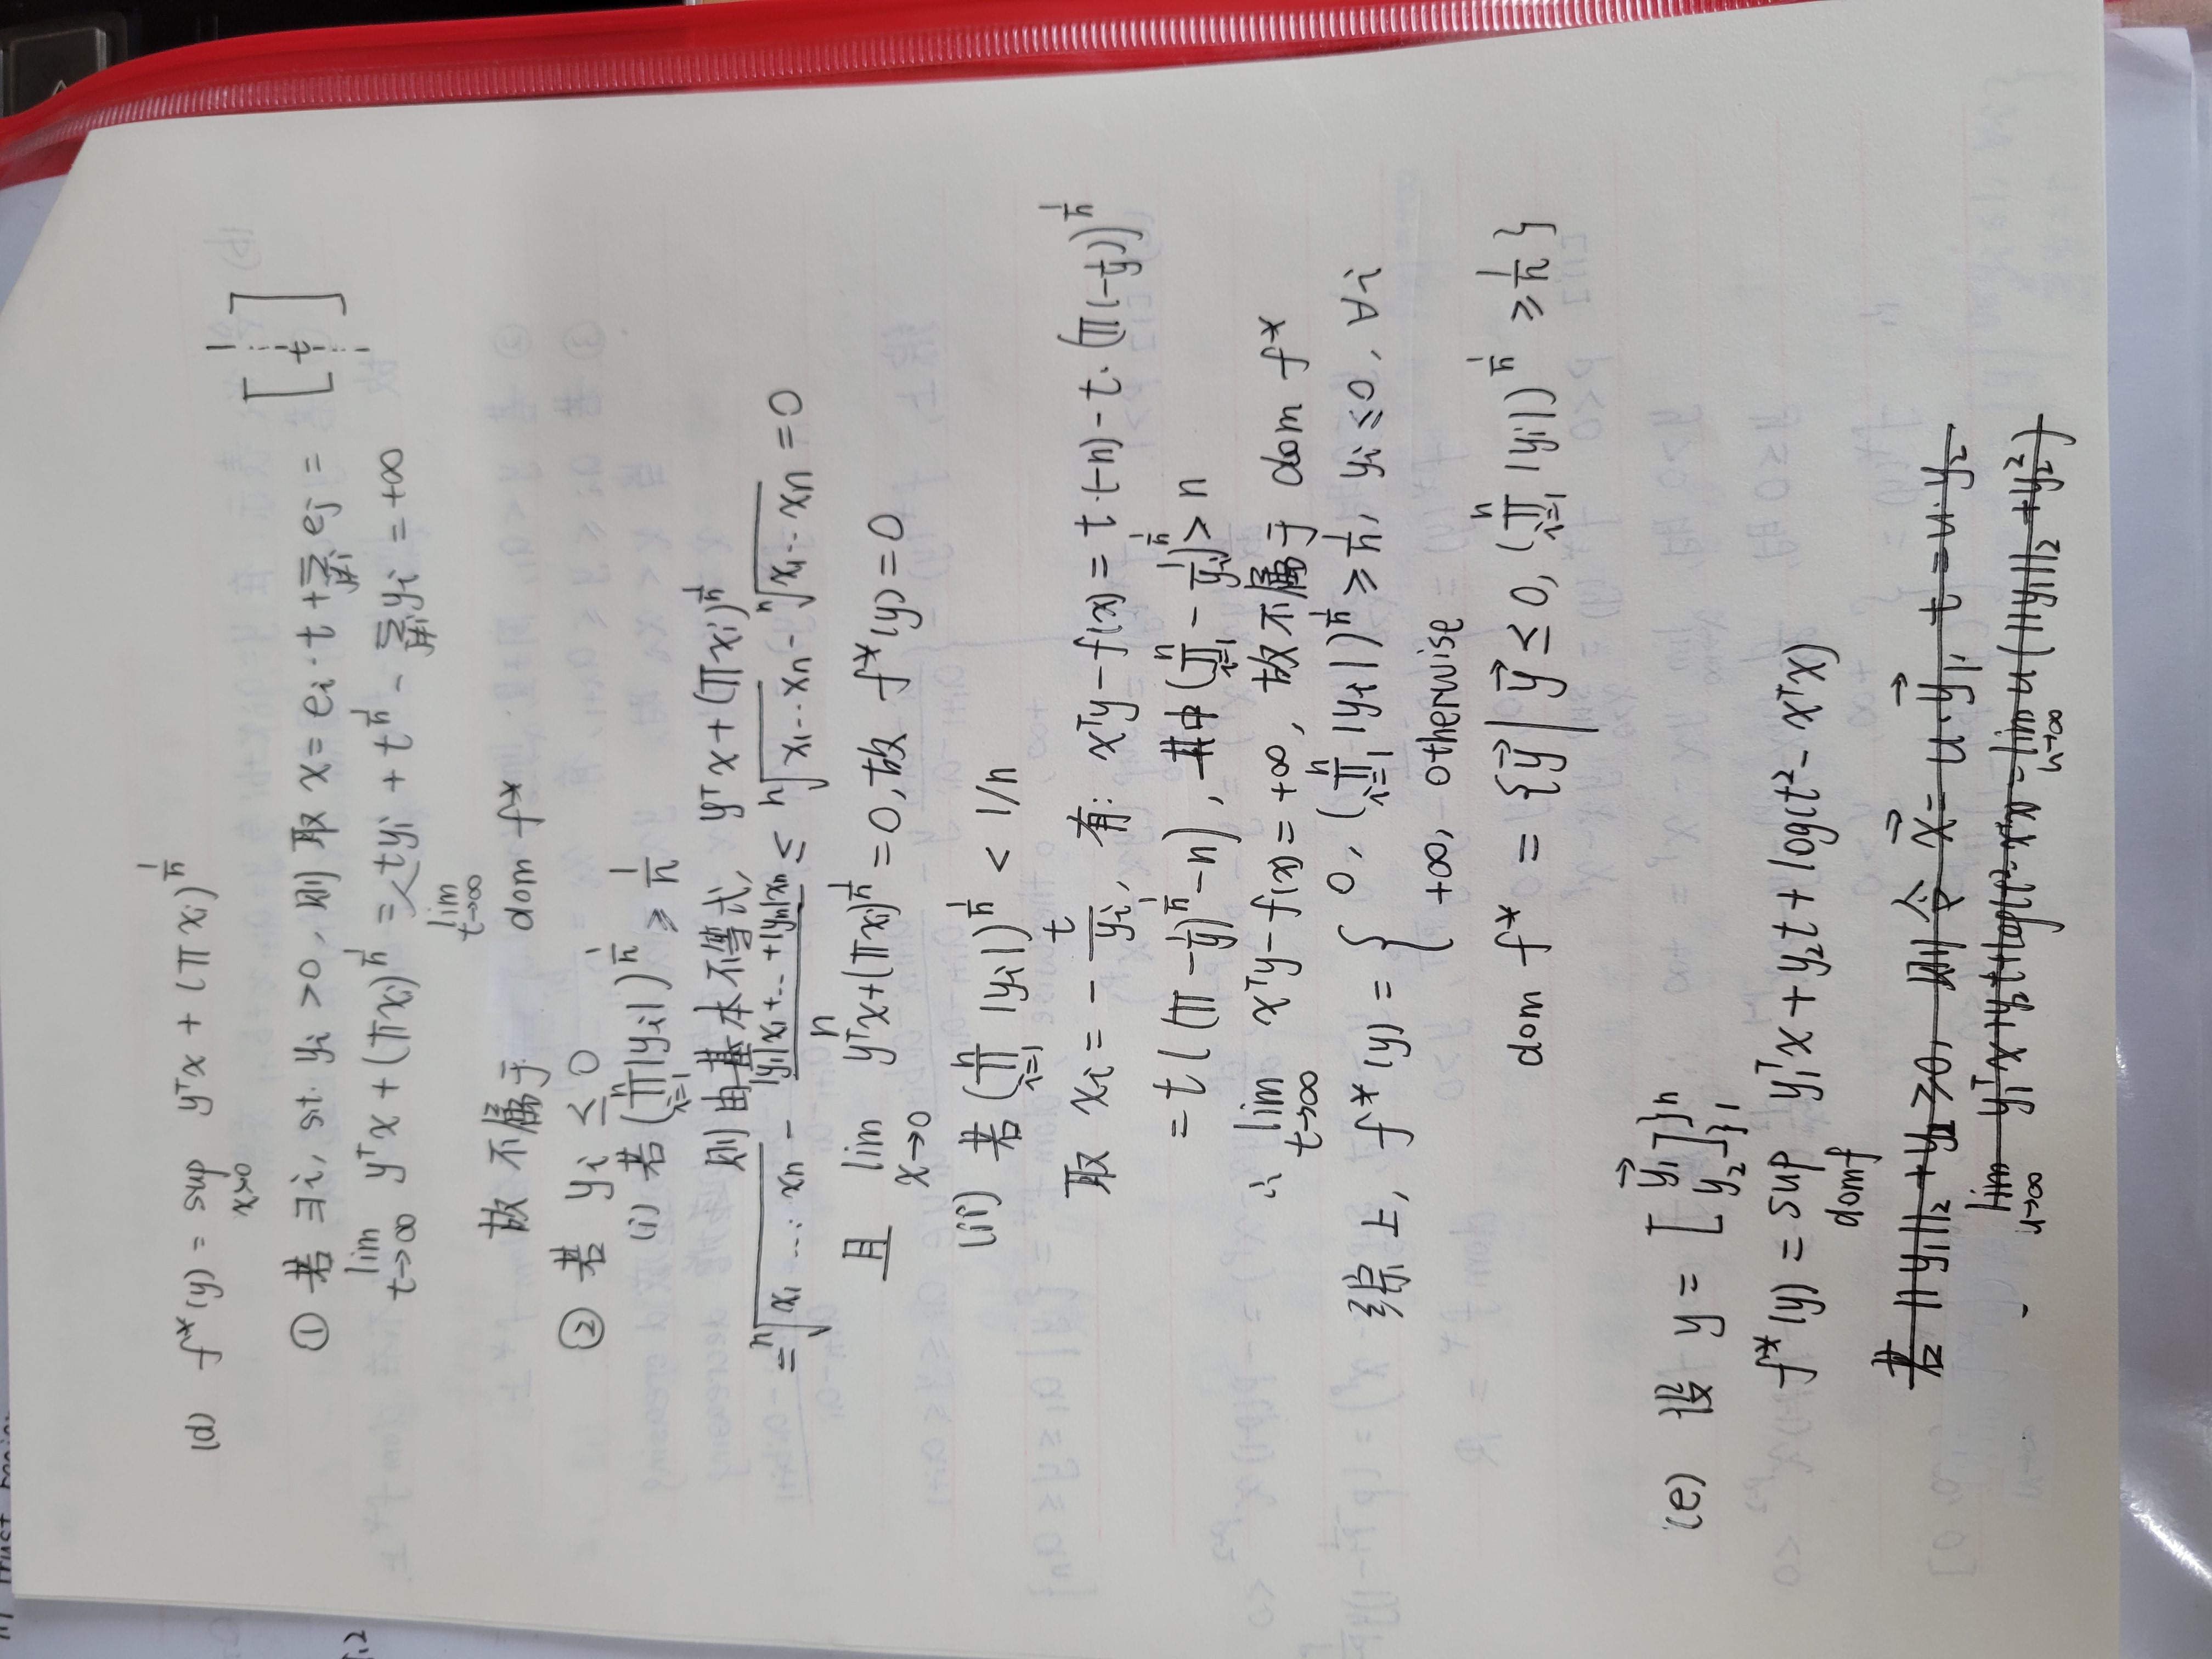 (d) f*(y) = sup_{x≻0} yᵀx + (∏ xᵢ)^{1/n}
① 若 ∃i, s.t. yᵢ > 0, 则 取 x = eᵢ·t + Σ_{j≠i} eⱼ = [1 ⋮ t ⋮ 1]
lim_{t→∞} yᵀx + (∏xᵢ)^{1/n} = lim_{t→∞} tyᵢ + t^{1/n} - Σ_{j≠i} yᵢ = +∞
故 不属于 dom f*
② 若 yᵢ ≤ 0
(i) 若 (∏_{i=1}^{n} |yᵢ|)^{1/n} ≥ 1/n
则由基本不等式, yᵀx + (∏xᵢ)^{1/n}
= ⁿ√(x₁ ... xₙ) - (|y₁|x₁ + ... + |yₙ|xₙ)/n ≤ ⁿ√(x₁...xₙ) - ⁿ√(x₁...xₙ) = 0
且 lim_{x→0} yᵀx + (∏xᵢ)^{1/n} = 0, 故 f*(y) = 0
(ii) 若 (∏_{i=1}^{n} |yᵢ|)^{1/n} < 1/n
取 xᵢ = - t/yᵢ, 有: xᵀy - f(x) = t·(-n) - t·(∏(-1/y))^{1/n}
= t((∏ -1/y)^{1/n} - n), 其中 (∏_{i=1}^{n} - 1/yᵢ)^{1/n} > n
∴ lim_{t→∞} xᵀy - f(x) = +∞, 故不属于 dom f*
综上, f*(y) = { 0, (∏_{i=1}^{n} |yᵢ|)^{1/n} ≥ 1/n, yᵢ ≤ 0, ∀i
+∞, otherwise
dom f* = {y⃗ | y⃗ ≤ 0, (∏_{i=1}^{n} |yᵢ|)^{1/n} ≥ 1/n}
(e) 设 y = [y⃗₁ y₂] }n }1
f*(y) = sup_{dom f} y₁ᵀx + y₂t + log(t² - xᵀx)
若 ||y₁||₂ + y₂ ≥ 0, 则 令 x⃗ = u·y⃗₁, t = u·y₂
lim_{u→∞} y₁ᵀx + y₂t + log(t² - xᵀx) = lim_{u→∞} u(||y₁||₂ + y₂²)